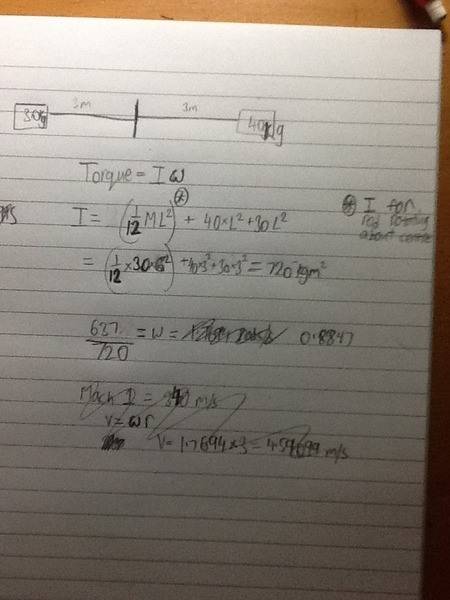 3m 3m
30kg 40kg
Torque = I ω
I = (1/12 ML²) + 40×L² + 30L²
⊛ I for
rod rotating
about centre
= (1/12 × 30×6²) + 40×3² + 30×3² = 720 kgm²
637/720 = ω = 0.8847
Mach 1 = 340 m/s
v = ωr
V = 1.7694 × 3 = m/s